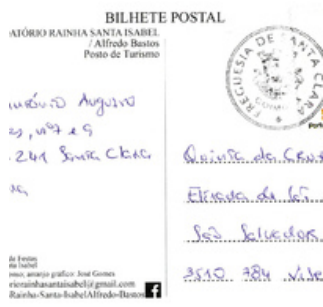 BILHETE POSTAL
ATÓRIO RAINHA SANTA ISABEL
/ Alfredo Bastos
Posto de Turismo
António Augusto
nº7 e 9
241 Santa Clara
FREGUESIA DE SANTA CLARA
COIMBRA
Quinta da Cruz
Estrada de
São Salvador
3510 784 Vise
de Festas
nha Isabel
esso; arranjo gráfico: José Gomes
riorainhasantaisabel@gmail.com
Rainha-Santa-IsabelAlfredo-Bastos